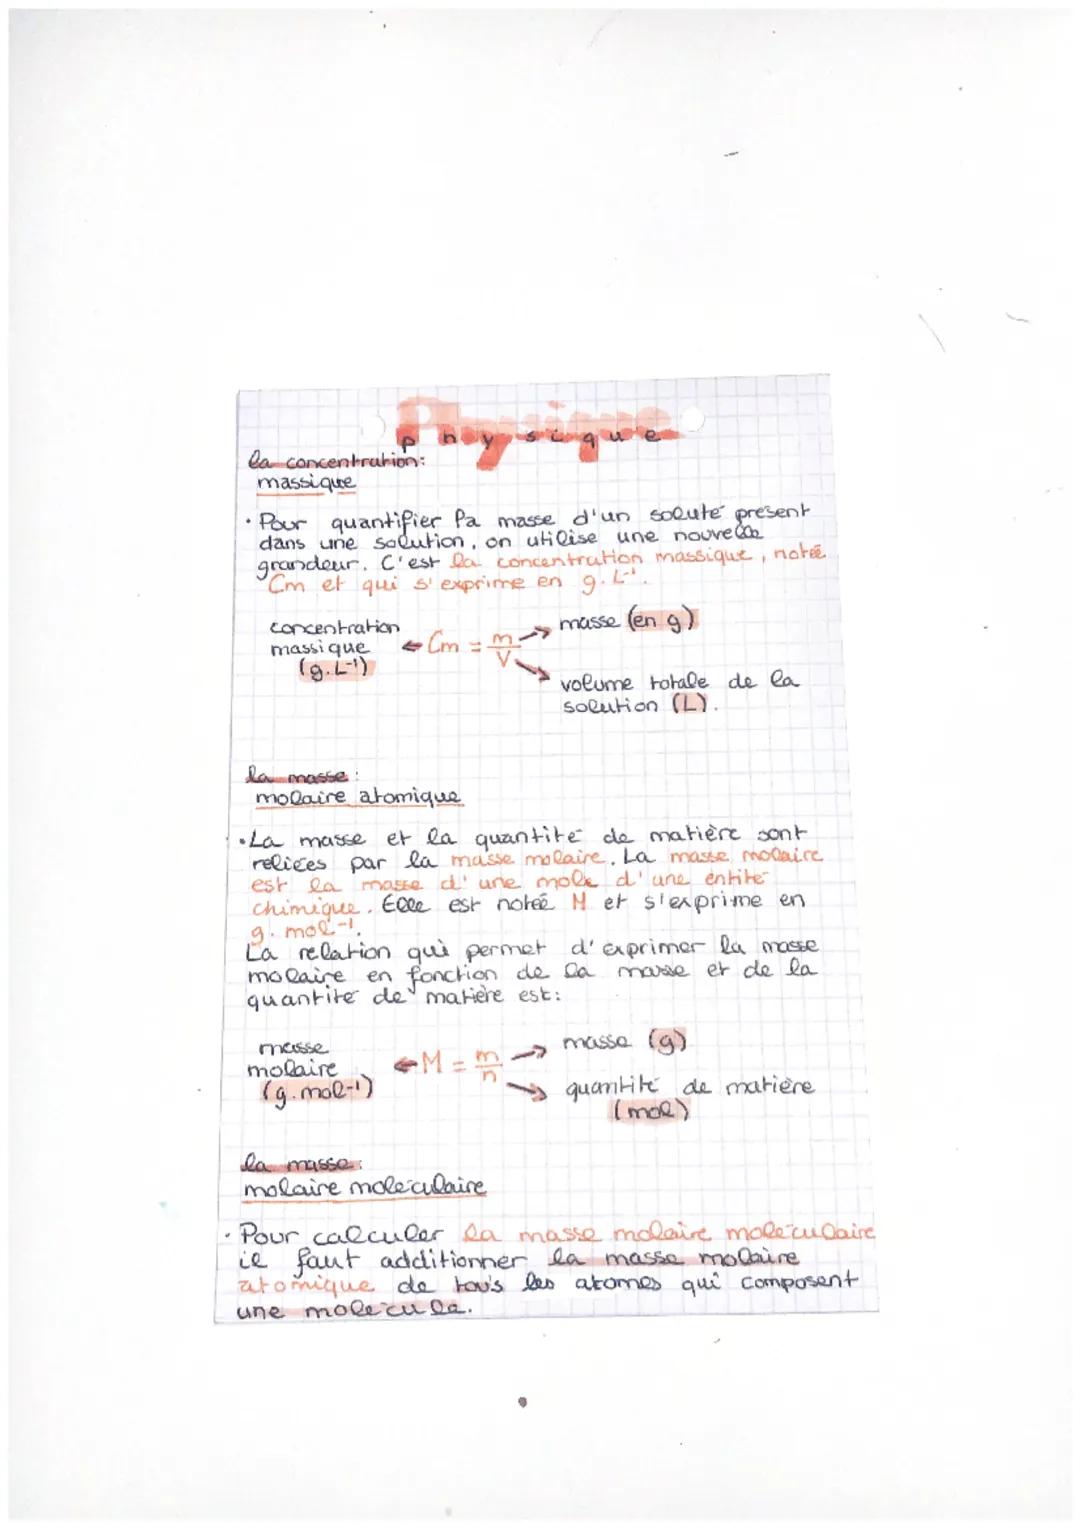 Physique
physique
la concentration:
massique
• Pour quantifier la masse d'un soluté présent
dans une solution, on utilise une nouvelle
grandeur. C'est la concentration massique, notée
Cm et qui s'exprime en g.L⁻¹.
concentration massique (g.L⁻¹) ← Cm = m/V → masse (en g)
→ volume totale de la
solution (L).
la masse :
molaire atomique
• La masse et la quantité de matière sont
reliées par la masse molaire. La masse molaire
est la masse d'une mole d'une entité
chimique. Elle est notée M et s'exprime en
g.mol⁻¹.
La relation qui permet d'exprimer la masse
molaire en fonction de la masse et de la
quantité de matière est:
masse molaire (g.mol⁻¹) ← M = m/n → masse (g)
→ quantité de matière
(mol)
la masse:
molaire moléculaire
• Pour calculer la masse molaire moléculaire
il faut additionner la masse molaire
atomique de tous les atomes qui composent
une molécule.